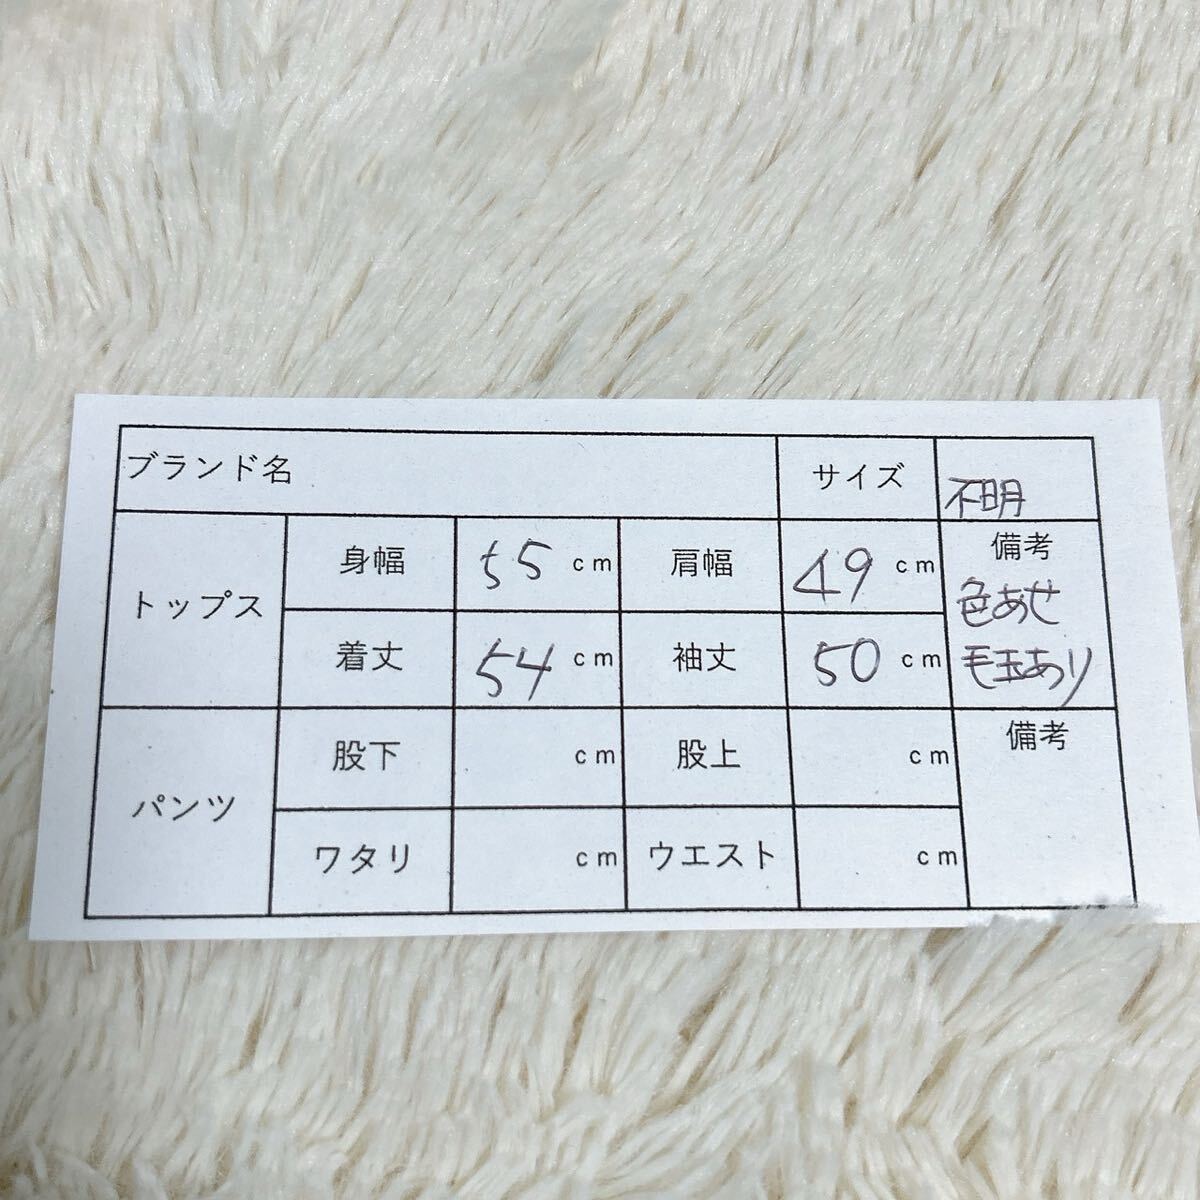 ブランド名 サイズ 不明
トップス 身幅 55 cm 肩幅 49 cm 備考
色あせ
着丈 54 cm 袖丈 50 cm 毛玉あり
パンツ 股下 cm 股上 cm 備考
ワタリ cm ウエスト cm